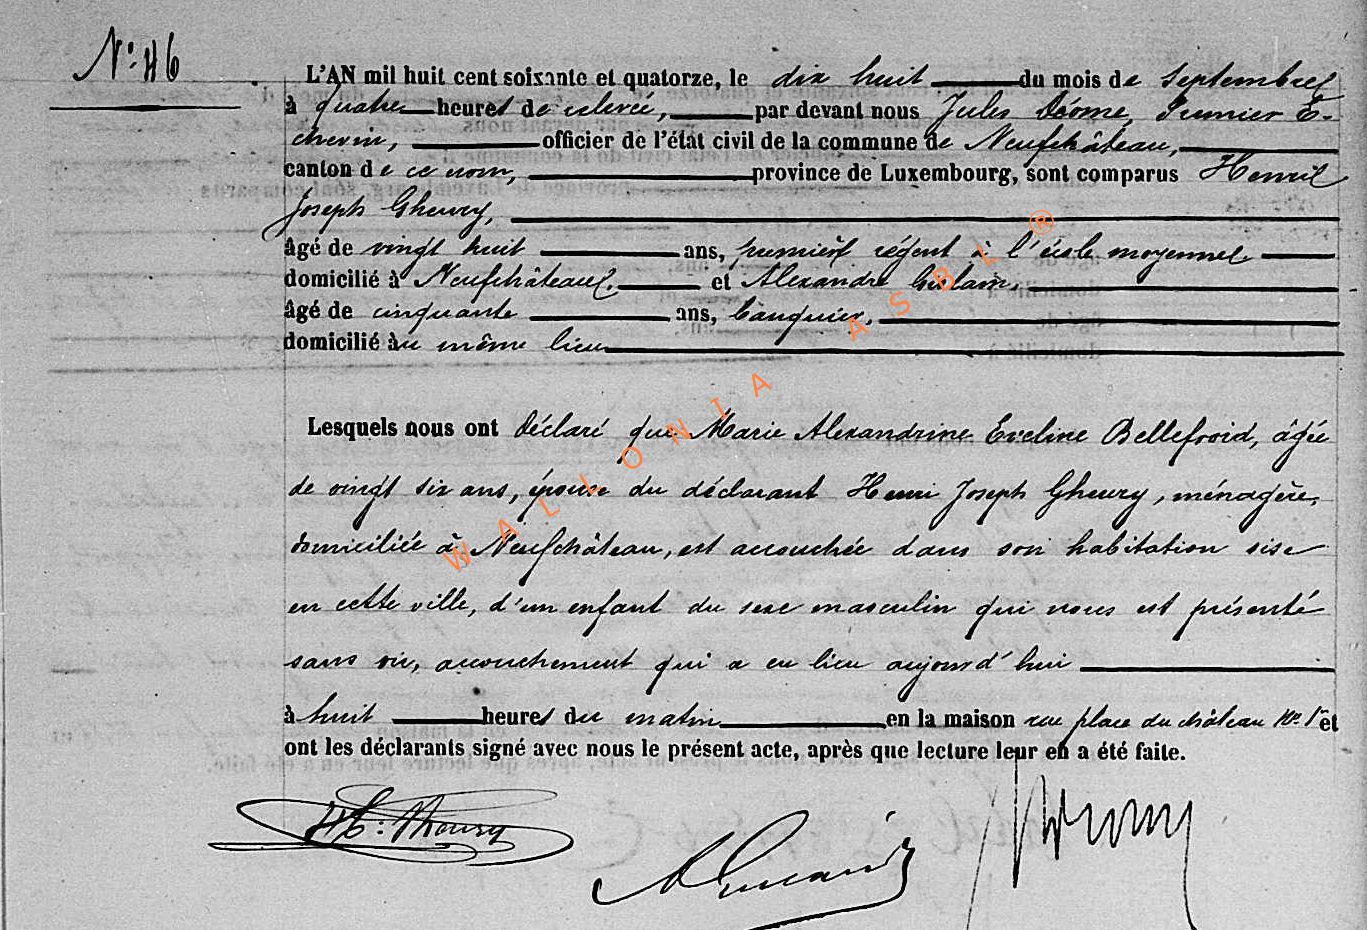 N° 46
L'AN mil huit cent soixante et quatorze, le dix huit du mois de Septembre
à quatre heures de relevée, par devant nous Jules Déome, Premier E-
chevin, officier de l'état civil de la commune de Neufchâteau,
canton de ce nom, province de Luxembourg, sont comparus Henri
Joseph Gheury,
âgé de vingt huit ans, premier régent à l'école moyenne
domicilié à Neufchâteau, et Alexandre
âgé de cinquante ans, banquier,
domicilié au même lieu
Lesquels nous ont déclaré que Marie Alexandrine Eveline Bellefroid, âgée
de vingt six ans, épouse du déclarant Henri Joseph Gheury, ménagère,
domiciliée à Neufchâteau, est accouchée dans son habitation sise
en cette ville, d'un enfant du sexe masculin qui nous est présenté
sans vie, accouchement qui a eu lieu aujourd'hui
à huit heures du matin en la maison rue place du château N° 1er et
ont les déclarants signé avec nous le présent acte, après que lecture leur en a été faite.
H. Gheury
WALLONIA ASBL ®